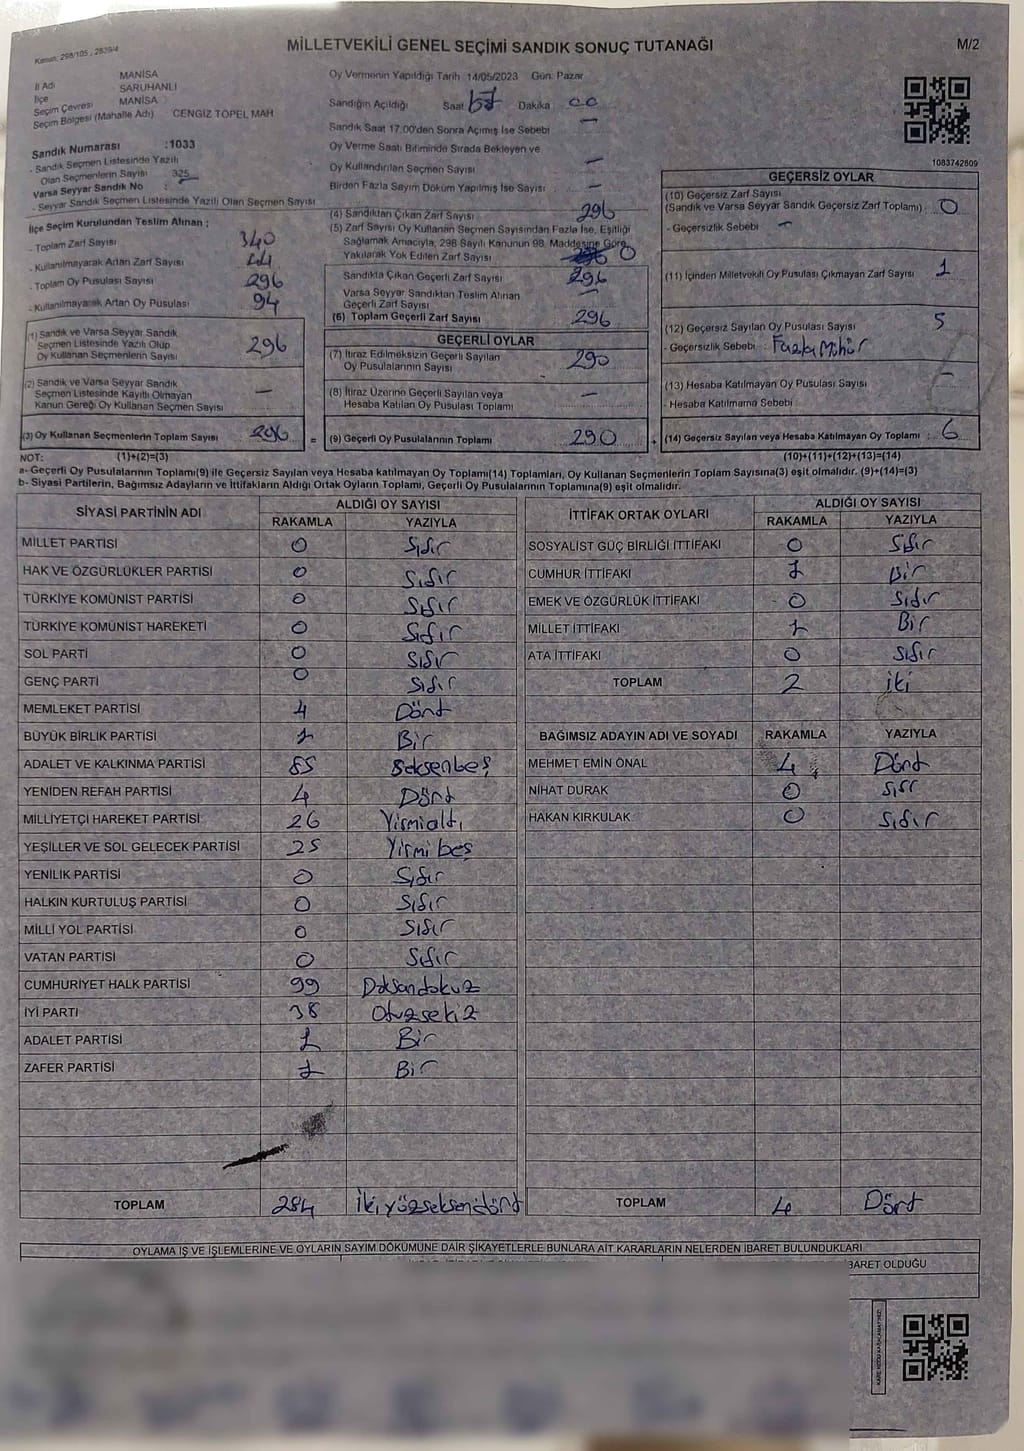 Kanun, 298/105, 2839/4
MİLLETVEKİLİ GENEL SEÇİMİ SANDIK SONUÇ TUTANAĞI
M/2
İl Adı MANİSA
İlçe SARUHANLI
Seçim Çevresi MANİSA
Seçim Bölgesi (Mahalle Adı) CENGİZ TOPEL MAH
Sandık Numarası :1033
- Sandık Seçmen Listesinde Yazılı
Olan Seçmenlerin Sayısı 325
Varsa Seyyar Sandık No :
- Seyyar Sandık Seçmen Listesinde Yazılı Olan Seçmen Sayısı
İlçe Seçim Kurulundan Teslim Alınan ;
- Toplam Zarf Sayısı 340
- Kullanılmayarak Artan Zarf Sayısı 44
- Toplam Oy Pusulası Sayısı 296
- Kullanılmayarak Artan Oy Pusulası 94
(1) Sandık ve Varsa Seyyar Sandık
Seçmen Listesinde Yazılı Olup
Oy Kullanan Seçmenlerin Sayısı 296
(2) Sandık ve Varsa Seyyar Sandık
Seçmen Listesinde Kayıtlı Olmayan
Kanun Gereği Oy Kullanan Seçmen Sayısı —
(3) Oy Kullanan Seçmenlerin Toplam Sayısı : 296 =
Oy Vermenin Yapıldığı Tarih :14/05/2023 Gün: Pazar
Sandığın Açıldığı Saat Dakika
Sandık Saat 17.00'den Sonra Açımış İse Sebebi —
Oy Verme Saati Bitiminde Sırada Bekleyen ve
Oy Kullandırılan Seçmen Sayısı —
Birden Fazla Sayım Döküm Yapılmış İse Sayısı : —
(4) Sandıktan Çıkan Zarf Sayısı 296
(5) Zarf Sayısı Oy Kullanan Seçmen Sayısından Fazla İse, Eşitliği
Sağlamak Amacıyla, 298 Sayılı Kanunun 98. Maddesine Göre
Yakılarak Yok Edilen Zarf Sayısı 0
Sandıkta Çıkan Geçerli Zarf Sayısı 296
Varsa Seyyar Sandıktan Teslim Alınan
Geçerli Zarf Sayısı —
(6) Toplam Geçerli Zarf Sayısı 296
GEÇERLİ OYLAR
(7) İtiraz Edilmeksizin Geçerli Sayılan
Oy Pusulalarının Sayısı 290
(8) İtiraz Üzerine Geçerli Sayılan veya
Hesaba Katılan Oy Pusulası Toplamı —
(9) Geçerli Oy Pusulalarının Toplamı 290 +
1083742609
GEÇERSİZ OYLAR
(10) Geçersiz Zarf Sayısı
(Sandık ve Varsa Seyyar Sandık Geçersiz Zarf Toplamı) : 0
- Geçersizlik Sebebi —
(11) İçinden Milletvekili Oy Pusulası Çıkmayan Zarf Sayısı 1
(12) Geçersiz Sayılan Oy Pusulası Sayısı 5
- Geçersizlik Sebebi : Fazla Mühür
(13) Hesaba Katılmayan Oy Pusulası Sayısı —
- Hesaba Katılmama Sebebi
(14) Geçersiz Sayılan veya Hesaba Katılmayan Oy Toplamı : 6
NOT: (1)+(2)=(3) (10)+(11)+(12)+(13)=(14)
a- Geçerli Oy Pusulalarının Toplamı(9) ile Geçersiz Sayılan veya Hesaba katılmayan Oy Toplamı(14) Toplamları, Oy Kullanan Seçmenlerin Toplam Sayısına(3) eşit olmalıdır. (9)+(14)=(3)
b- Siyasi Partilerin, Bağımsız Adayların ve İttifakların Aldığı Ortak Oyların Toplamı, Geçerli Oy Pusulalarının Toplamına(9) eşit olmalıdır.
SİYASİ PARTİNİN ADI ALDIĞI OY SAYISI
RAKAMLA YAZIYLA
MİLLET PARTİSİ 0 Sıfır
HAK VE ÖZGÜRLÜKLER PARTİSİ 0 Sıfır
TÜRKİYE KOMÜNİST PARTİSİ 0 Sıfır
TÜRKİYE KOMÜNİST HAREKETİ 0 Sıfır
SOL PARTİ 0 Sıfır
GENÇ PARTİ 0 Sıfır
MEMLEKET PARTİSİ 4 Dört
BÜYÜK BİRLİK PARTİSİ 1 Bir
ADALET VE KALKINMA PARTİSİ 85 Seksenbeş
YENİDEN REFAH PARTİSİ 4 Dört
MİLLİYETÇİ HAREKET PARTİSİ 26 Yirmialtı
YEŞİLLER VE SOL GELECEK PARTİSİ 25 Yirmi beş
YENİLİK PARTİSİ 0 Sıfır
HALKIN KURTULUŞ PARTİSİ 0 Sıfır
MİLLİ YOL PARTİSİ 0 Sıfır
VATAN PARTİSİ 0 Sıfır
CUMHURİYET HALK PARTİSİ 99 Doksandokuz
İYİ PARTİ 38 Otuzsekiz
ADALET PARTİSİ 1 Bir
ZAFER PARTİSİ 1 Bir
TOPLAM 284 İkiyüzseksendört
İTTİFAK ORTAK OYLARI ALDIĞI OY SAYISI
RAKAMLA YAZIYLA
SOSYALİST GÜÇ BİRLİĞİ İTTİFAKI 0 Sıfır
CUMHUR İTTİFAKI 1 Bir
EMEK VE ÖZGÜRLÜK İTTİFAKI 0 Sıfır
MİLLET İTTİFAKI 1 Bir
ATA İTTİFAKI 0 Sıfır
TOPLAM 2 iki
BAĞIMSIZ ADAYIN ADI VE SOYADI RAKAMLA YAZIYLA
MEHMET EMİN ÖNAL 4 Dört
NİHAT DURAK 0 Sıfır
HAKAN KIRKULAK 0 Sıfır
TOPLAM 4 Dört
OYLAMA İŞ VE İŞLEMLERİNE VE OYLARIN SAYIM DÖKÜMÜNE DAİR ŞİKAYETLERLE BUNLARA AİT KARARLARIN NELERDEN İBARET BULUNDUKLARI
İBARET OLDUĞU